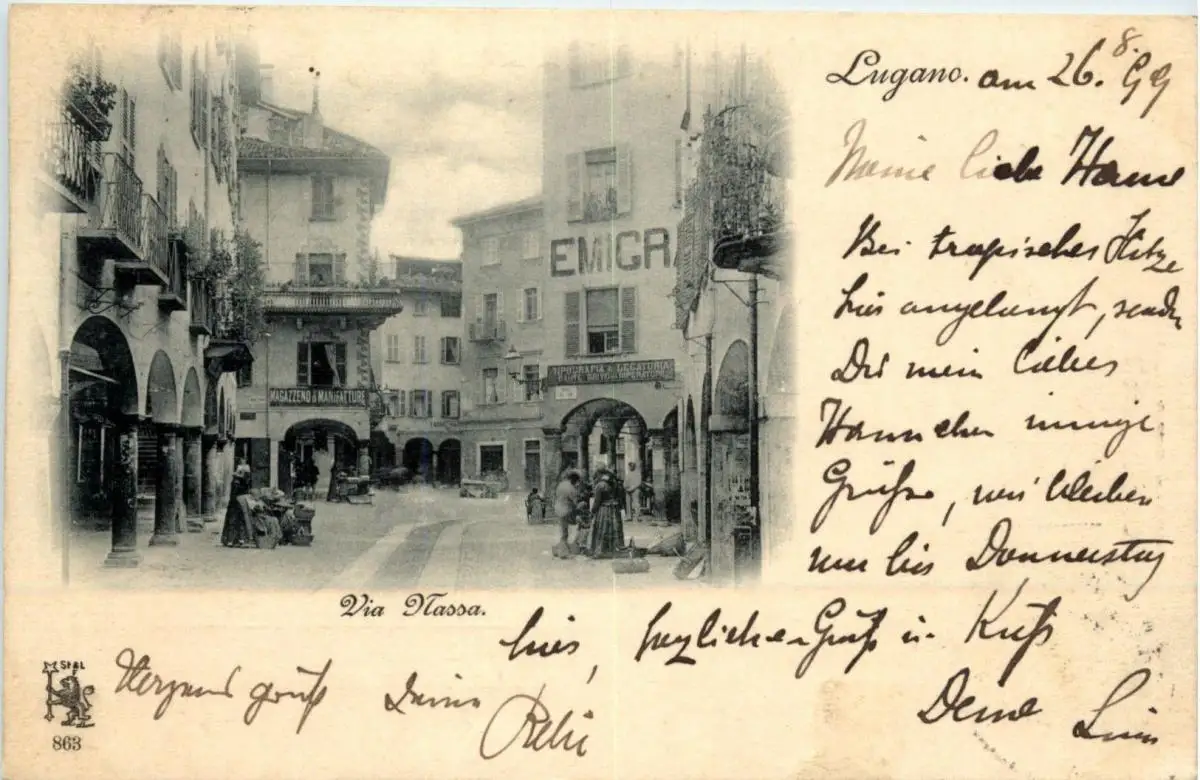 Lugano. am 26. 8. 99
Meine liebe Hanne
Bei tropischer Hitze
hier angelangt, senden
Dir mein liebes
Hannchen innige
Grüße, wir bleiben
nur bis Donnerstag
hier, herzlichen Gruß u. Kuß
Deine
EMIGRA
TIPOGRAFIA & LEGATORIA
MAGAZZENO di MANIFATTURE
Via Nassa.
gruß Deine
863